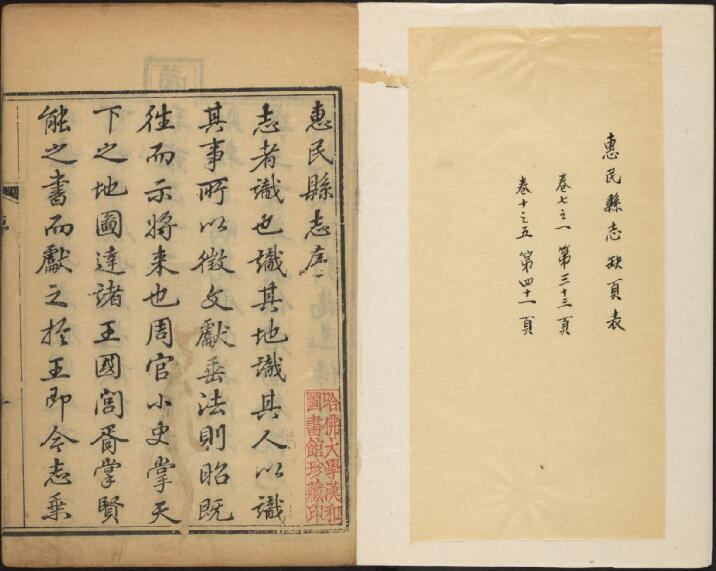 惠民縣志缺頁表
卷七之一 第三十三頁
卷十之五 第四十一頁
惠民縣志序
志者識也識其地識其人以識
其事所以徵文獻垂法則昭既
往而示將来也周官小史掌天
下之地圖達諸王國閭胥掌賢
能之書而獻之於王即今志乗
哈佛大學漢和
圖書館珍藏印